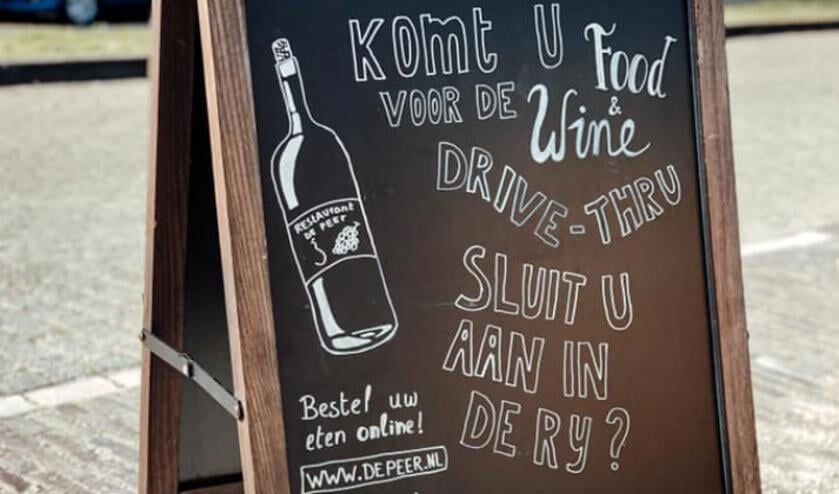 KOMT U
VOOR DE
Food
&
Wine
DRIVE-THRU
SLUIT U
AAN IN
DE RY?
RESTAURANT
DE PEER
Bestel uw
eten online!
WWW.DEPEER.NL